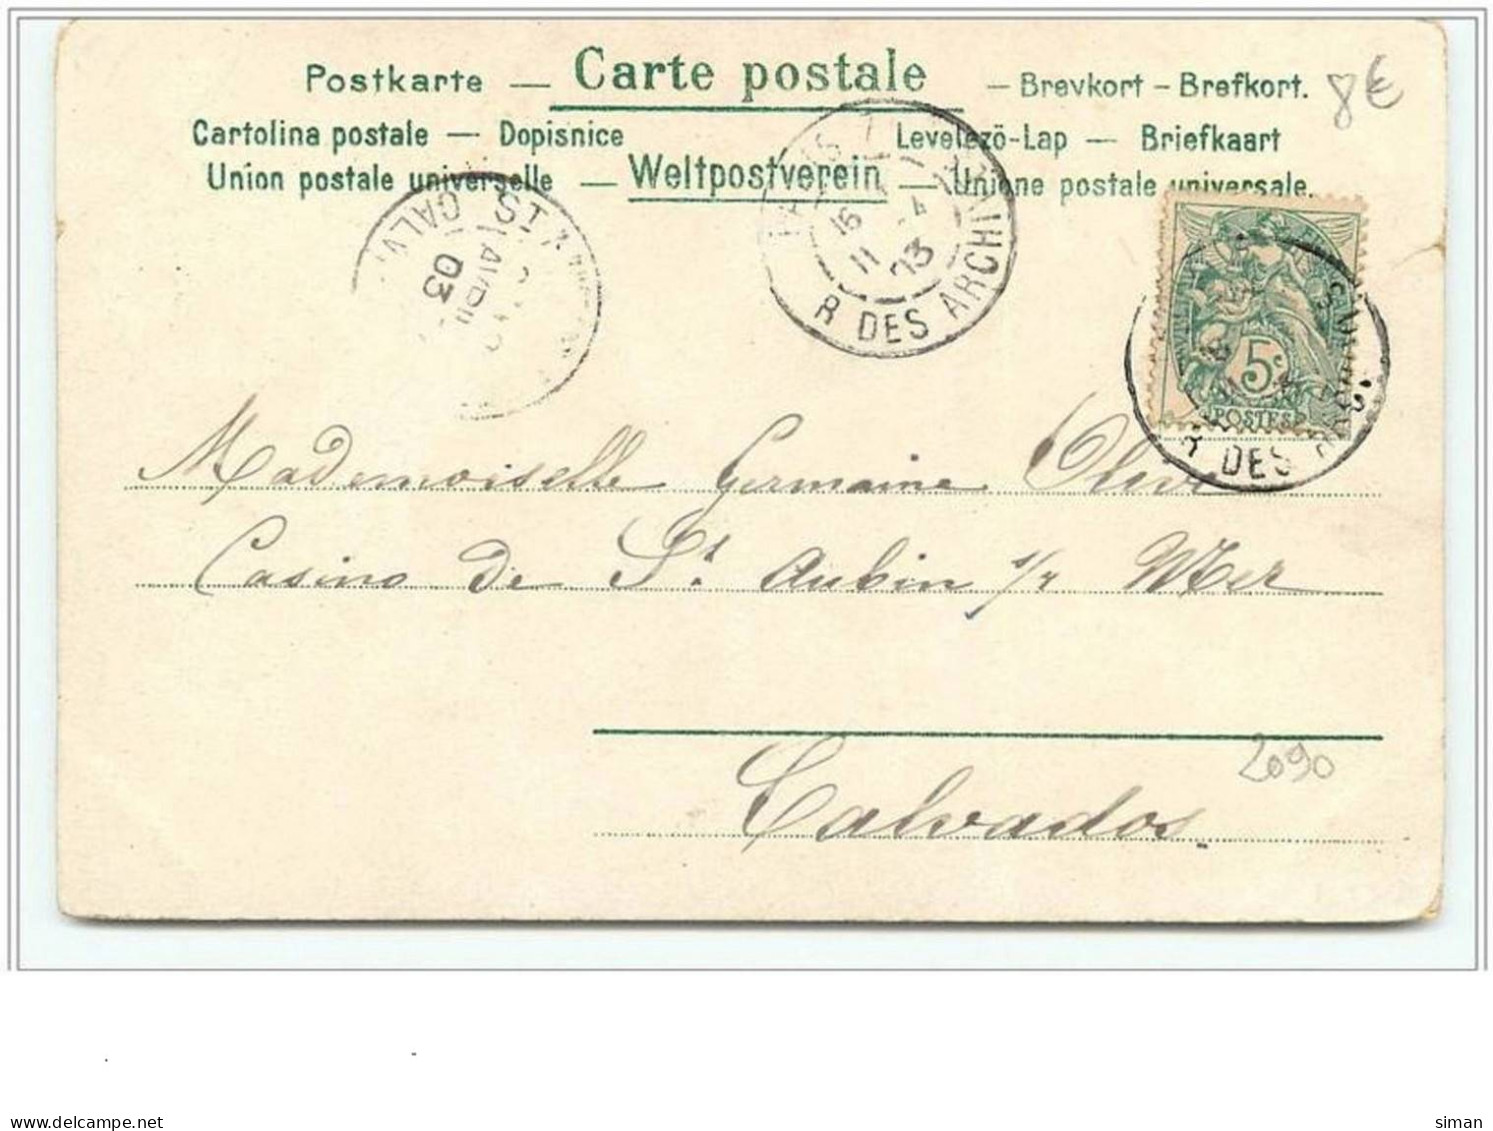 Postkarte — Carte postale — Brevkort – Brefkort. 8€
Cartolina postale — Dopisnice Levelező-Lap — Briefkaart
Union postale universelle — Weltpostverein — Unione postale universale.
ST
CALV
AVRIL
03
PARIS 7
16
11 -4
03
R DES ARCHIVES
5c
POSTES
R DES
Mademoiselle Germaine
Casino de St Aubin s/r Mer
2090
Calvados
www.delcampe.net
siman